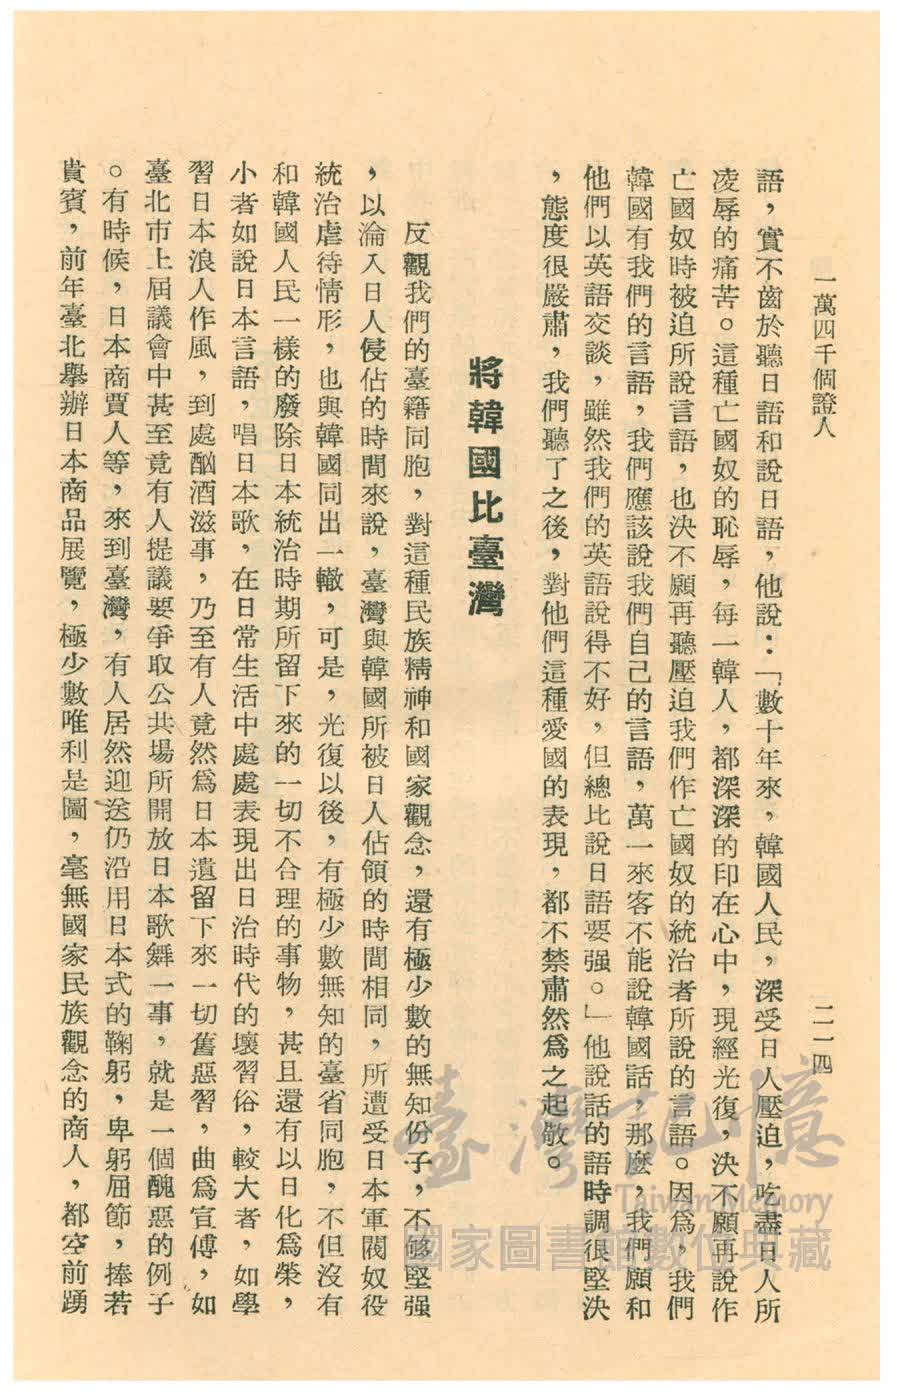 一萬四千個證人
二一四
語，實不齒於聽日語和說日語，他說：「數十年來，韓國人民，深受日人壓迫，吃盡日人所
凌辱的痛苦。這種亡國奴的恥辱，每一韓人，都深深的印在心中，現經光復，決不願再說作
亡國奴時被迫所說言語，也決不願再聽壓迫我們作亡國奴的統治者所說的言語。因為，我們
韓國有我們的言語，我們應該說我們自己的言語，萬一來客不能說韓國話，那麼，我們願和
他們以英語交談，雖然我們的英語說得不好，但總比說日語要强。」他說話的語時調很堅決
，態度很嚴肅，我們聽了之後，對他們這種愛國的表現，都不禁肅然為之起敬。
將韓國比臺灣
反觀我們的臺籍同胞，對這種民族精神和國家觀念，還有極少數的無知份子，不够堅强
，以淪入日人侵佔的時間來說，臺灣與韓國所被日人佔領的時間相同，所遭受日本軍閥奴役
統治虐待情形，也與韓國同出一轍，可是，光復以後，有極少數無知的臺省同胞，不但沒有
和韓國人民一樣的廢除日本統治時期所留下來的一切不合理的事物，甚且還有以日化為榮，
小者如說日本言語，唱日本歌，在日常生活中處處表現出日治時代的壞習俗，較大者，如學
習日本浪人作風，到處酗酒滋事，乃至有人竟然為日本遺留下來一切舊惡習，曲為宣傳，如
臺北市上屆議會中甚至竟有人提議要爭取公共場所開放日本歌舞一事，就是一個醜惡的例子
。有時候，日本商賈人等，來到臺灣，有人居然迎送仍沿用日本式的鞠躬，卑躬屈節，捧若
貴賓，前年臺北舉辦日本商品展覽，極少數唯利是圖，毫無國家民族觀念的商人，都空前踴
臺灣記憶
Taiwan Memory
國家圖書館數位典藏